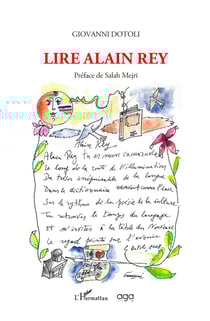 GIOVANNI DOTOLI
LIRE ALAIN REY
Préface de Salah Mejri
Alain Rey
Alain Rey tu es mon camarade
Le long de la route de l'illumination
Du trésor de la langue
Dans le dictionnaire
Sur le rythme de la poésie de la culture
Tu retrouves le temps du langage
et m'invites à la table du
Le regard pointé sur l'avenir
L'Harmattan
aga